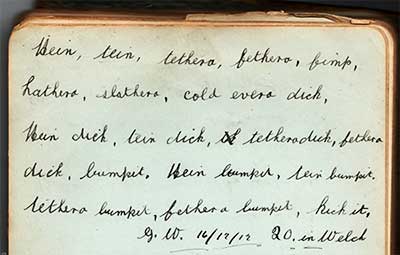 Hein, tein, tethera, fethera, fimp,
hathera, slathera, cold evera dick,
Hein dick, tein dick, tetheradick, fethera
dick, bumpit. Hein bumpit, tein bumpit.
tethera bumpit, fethera bumpit, kick it.
G. W. 16/12/12 20. in Welch